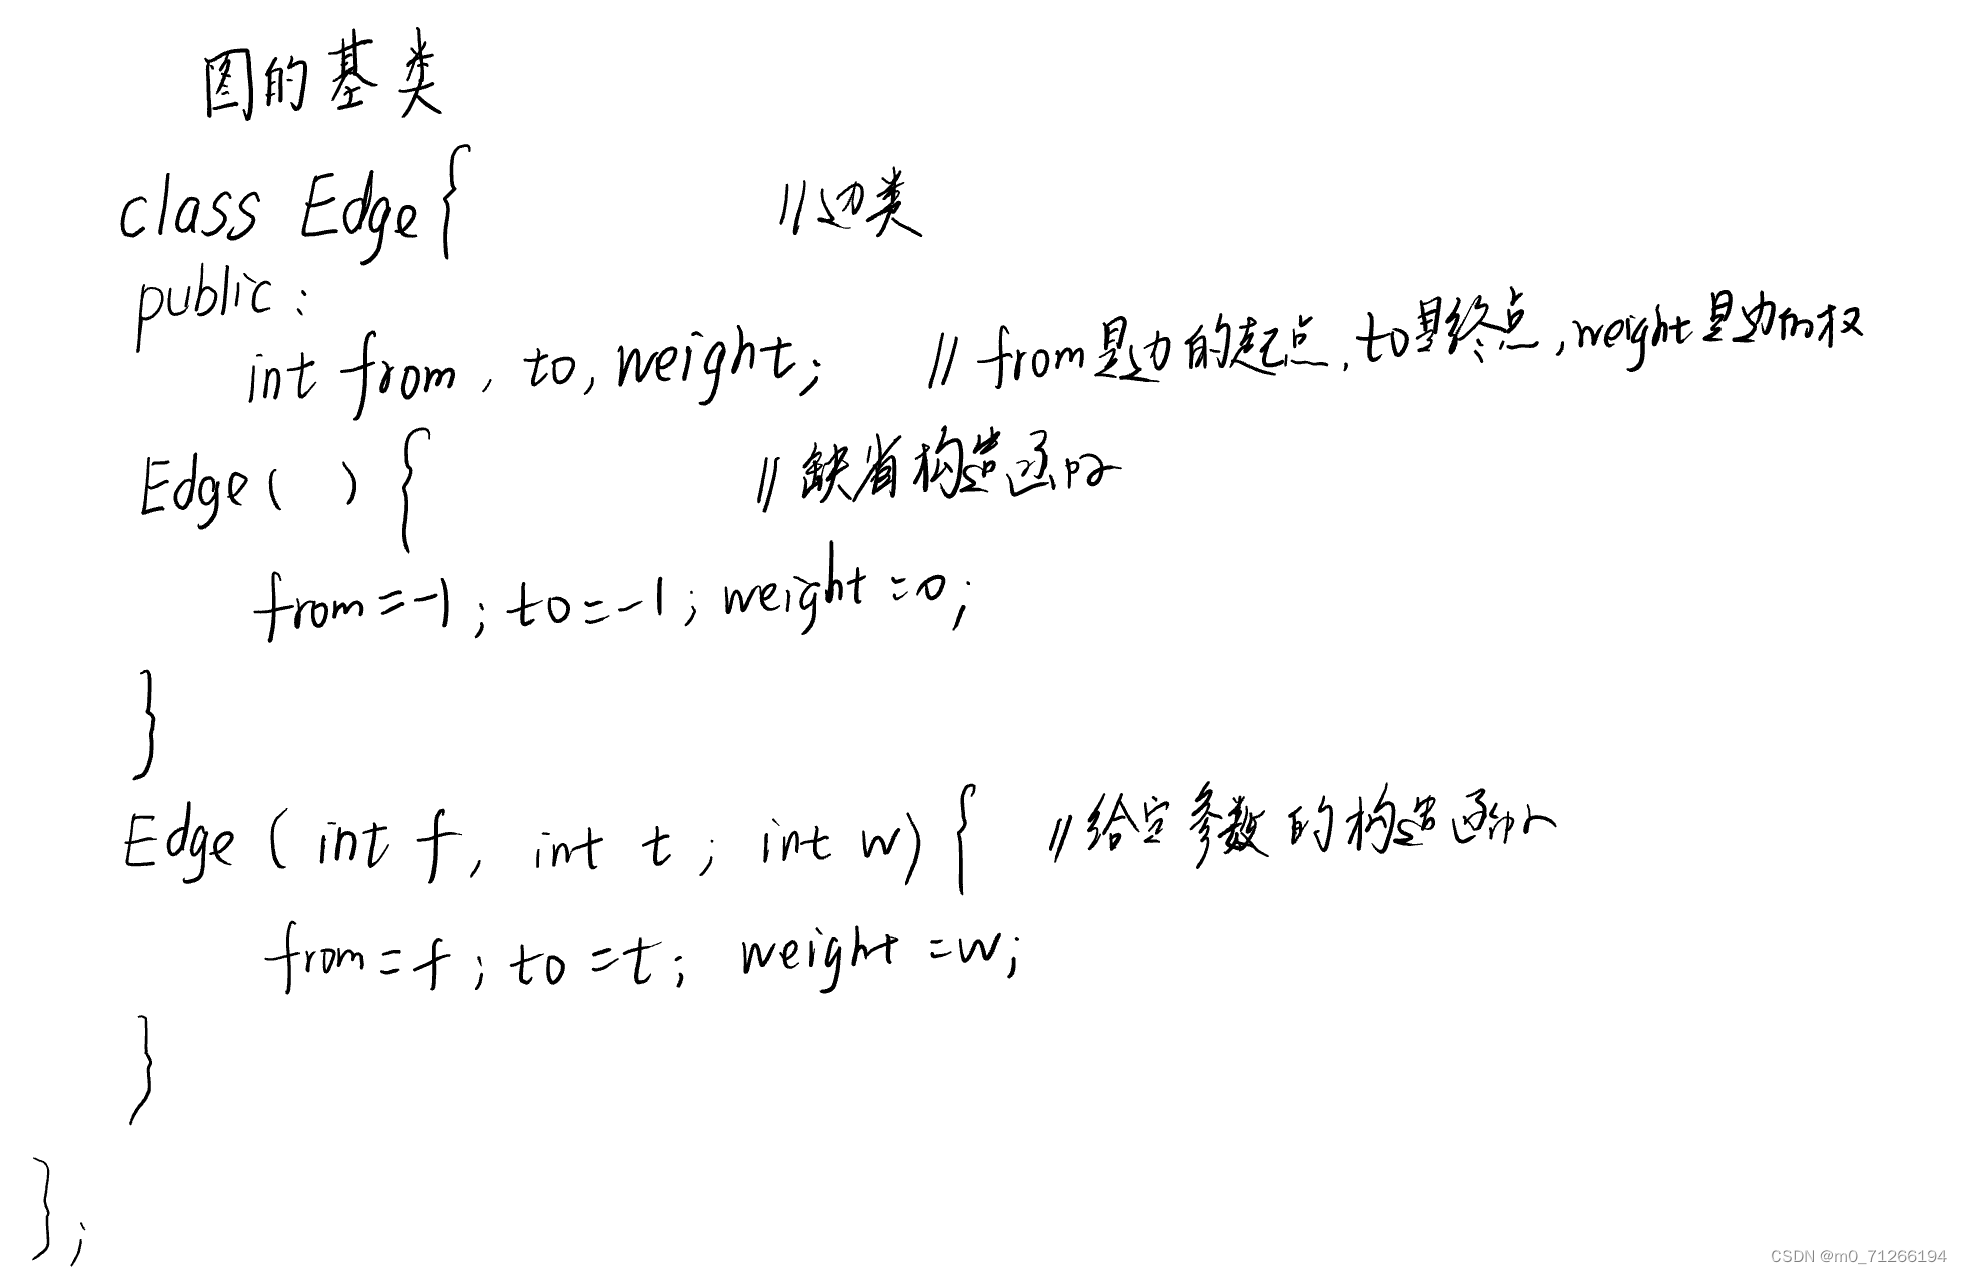 图的基类
class Edge{ //边类
public:
int from, to, weight; //from是边的起点,to是终点,weight是边的权
Edge( ){ //缺省构造函数
from=-1; to=-1; weight=0;
}
Edge(int f, int t; int w){ //给定参数的构造函数
from=f; to=t; weight=w;
}
};
CSDN @m0_71266194